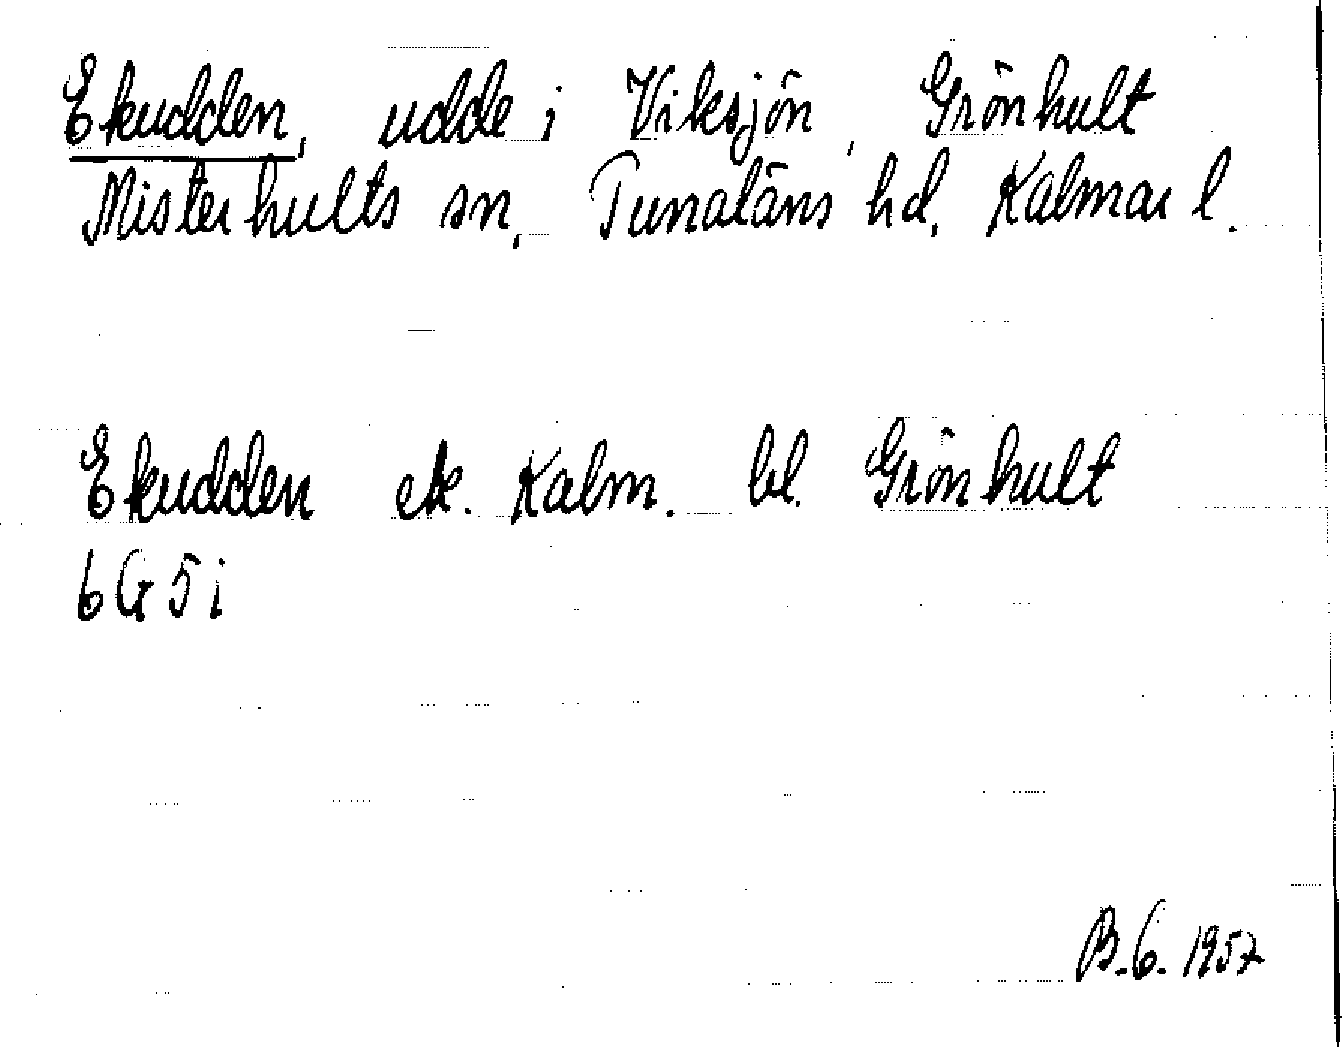 Ekudden, udde i Viksjön, Grönhult
Misterhults sn, Tunaläns hd, Kalmar l.
Ekudden ek. Kalm. bl. Grönhult
6G5i
B.G. 1957